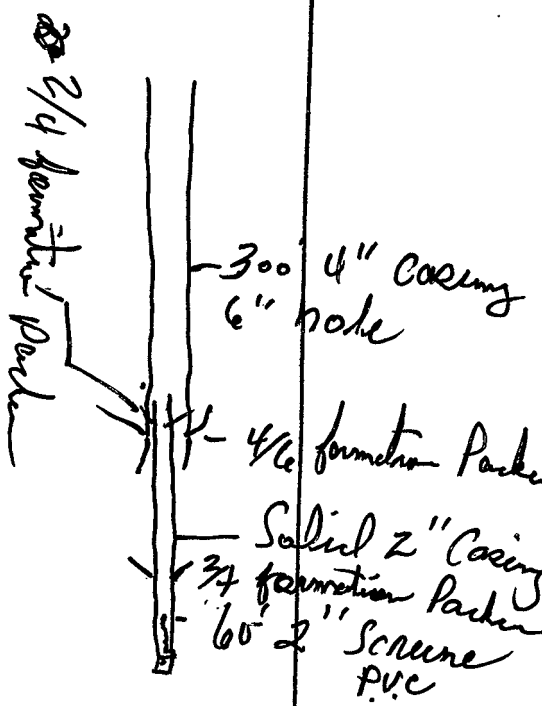 2/4 formation Packer
300' 4" Casing
6" hole
4/6 formation Packer
Solid 2" Casing
formation Packer
60' 2" Screene
P.V.C